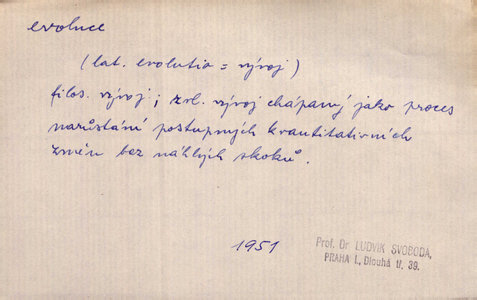 evoluce
(lat. evolutio = vývoj)
filos. vývoj; zvl. vývoj chápaný jako proces
narůstání postupných kvantitativních
změn bez náhlých skoků.
1951
Prof. Dr LUDVÍK SVOBODA,
PRAHA I., Dlouhá tř. 39.